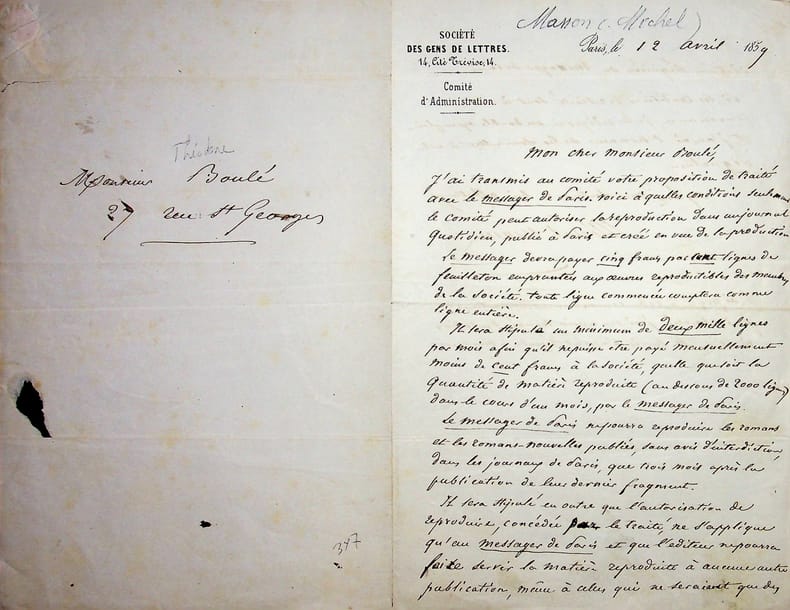 Théodore
Monsieur Boulé
27 rue St Georges
347
Masson (Michel)
SOCIÉTÉ
DES GENS DE LETTRES.
14, Cité Trévise, 14.
Comité
d'Administration.
Paris, le 12 avril 1859
Mon cher monsieur Boulé,
J'ai transmis au comité votre proposition de traité
avec le messager de Paris. voici à quelles conditions seulement
le Comité peut autoriser la reproduction dans un journal
quotidien, publié à Paris et créé en vue de la production
Le messager devra payer cinq francs par cent lignes de
feuilleton empruntées aux œuvres reproductibles des membres
de la Société. toute ligne commencée comptera comme
ligne entière.
Il sera stipulé un minimum de deux mille lignes
par mois afin qu'il ne puisse être payé mensuellement
moins de cent francs à la société, quelle que soit la
quantité de matière reproduite (au dessous de 2000 lignes)
dans le cours d'un mois, par le messager de Paris.
Le messager de Paris ne pourra reproduire les romans
et les romans-nouvelles publiés, sans avis d'interdiction,
dans les journaux de Paris, que trois mois après la
publication de leur dernier fragment.
Il sera stipulé en outre que l'autorisation de
reproduire, concédée par le traité ne s'applique
qu'au messager de Paris et que l'éditeur ne pourra
faire servir la matière reproduite à aucune autre
publication, même à celles qui ne seraient que des